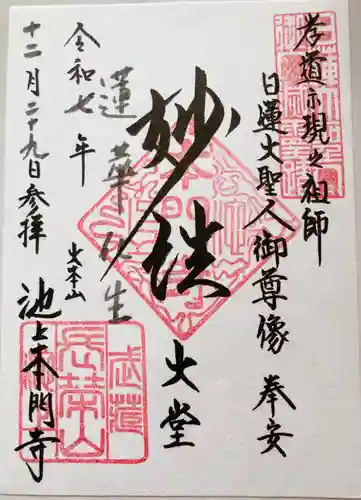 孝道示現之祖師
日蓮大聖人御尊像 奉安
妙法
大堂
蓮華化生
令和七年
十二月二十九日参拝
大本山
池上本門寺